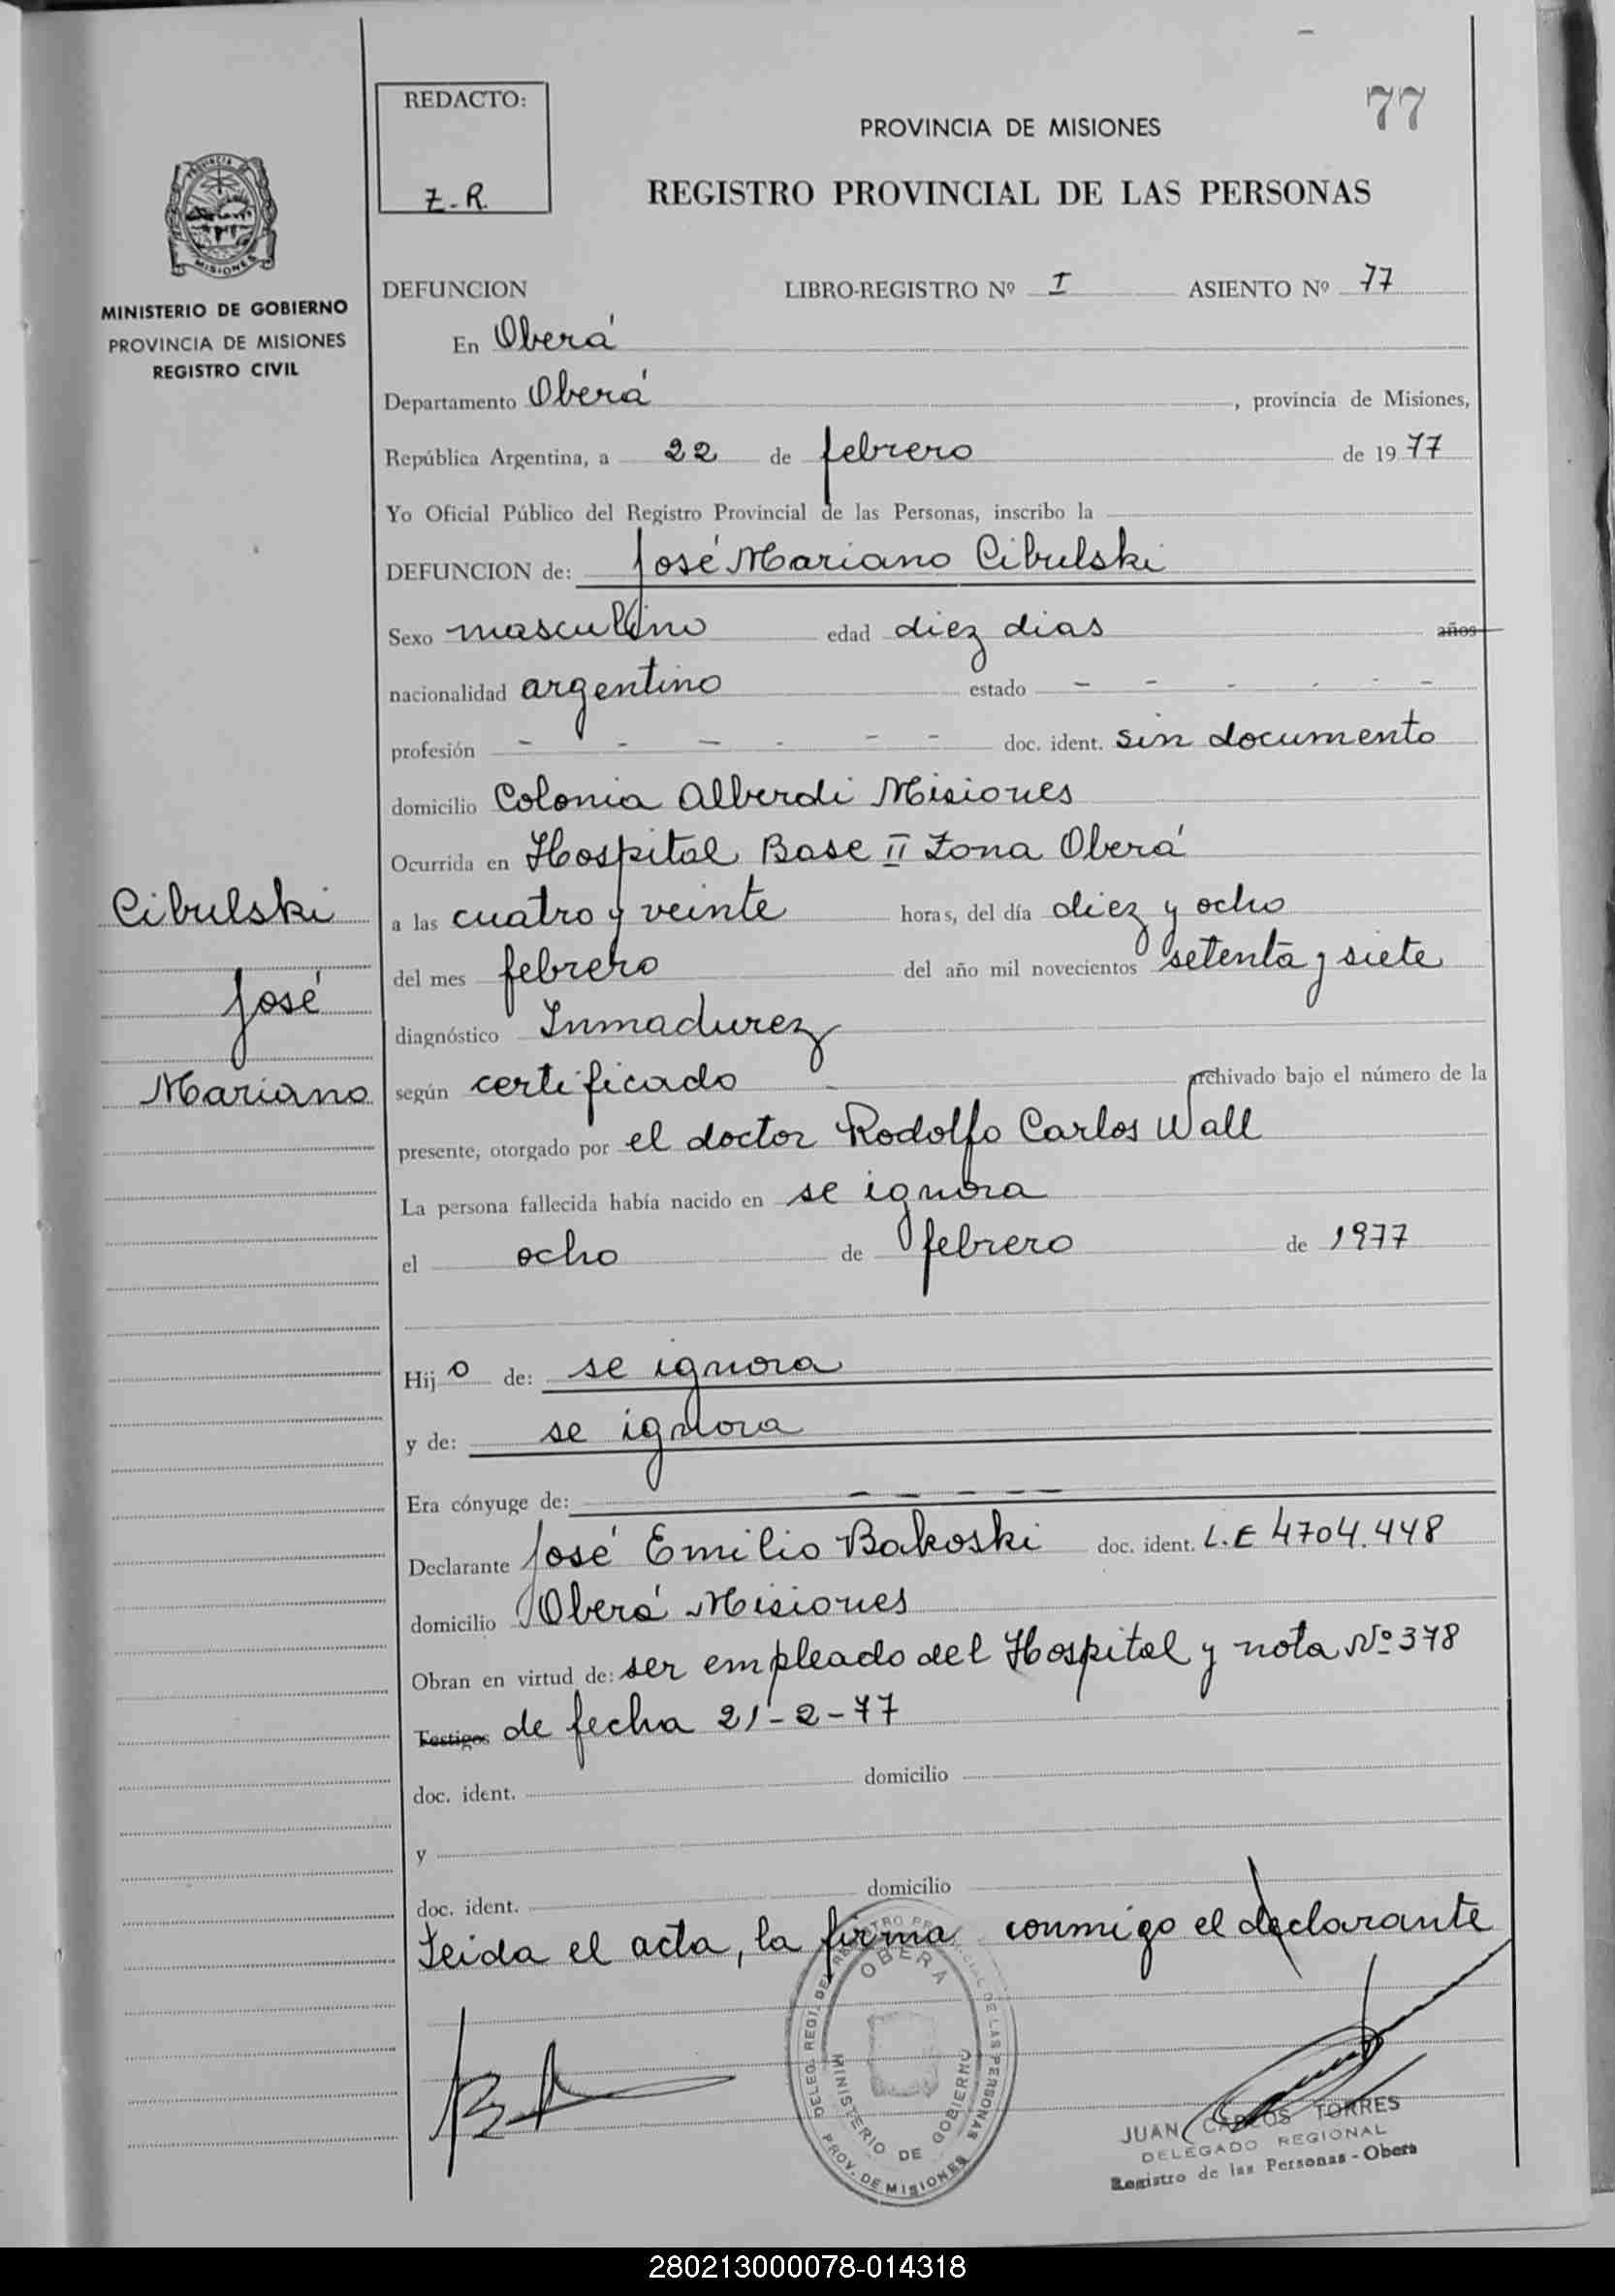 77
REDACTO:
Z-R.
PROVINCIA DE MISIONES
REGISTRO PROVINCIAL DE LAS PERSONAS
MISIONES
MINISTERIO DE GOBIERNO
PROVINCIA DE MISIONES
REGISTRO CIVIL
DEFUNCION LIBRO-REGISTRO Nº I ASIENTO Nº 77
En Oberá
Departamento Oberá, provincia de Misiones,
República Argentina, a 22 de febrero de 1977
Yo Oficial Público del Registro Provincial de las Personas, inscribo la
DEFUNCION de: José Mariano Cibulski
Sexo masculino edad diez dias años
nacionalidad argentino estado - - - - - -
profesión - - - - - - doc. ident. sin documento
domicilio Colonia Alberdi Misiones
Ocurrida en Hospital Base II Zona Oberá
Cibulski
José
Mariano
a las cuatro y veinte horas, del día diez y ocho
del mes febrero del año mil novecientos setenta y siete
diagnóstico Inmadurez
según certificado - archivado bajo el número de la
presente, otorgado por el doctor Rodolfo Carlos Wall
La persona fallecida había nacido en se ignora
el ocho de febrero de 1977
Hijo de: se ignora
y de: se ignora
Era cónyuge de: - - - - -
Declarante José Emilio Bakoski doc. ident. L.E 4704.448
domicilio Oberá Misiones
Obran en virtud de: ser empleado del Hospital y nota Nº 378
Testigos de fecha 21-2-77
doc. ident. domicilio
y
doc. ident. domicilio
Leida el acta, la firma conmigo el declarante
OBERA
MINISTERIO DE GOBIERNO
PROV. DE MISIONES
JUAN CARLOS TORRES
DELEGADO REGIONAL
Registro de las Personas - Oberá
280213000078-014318